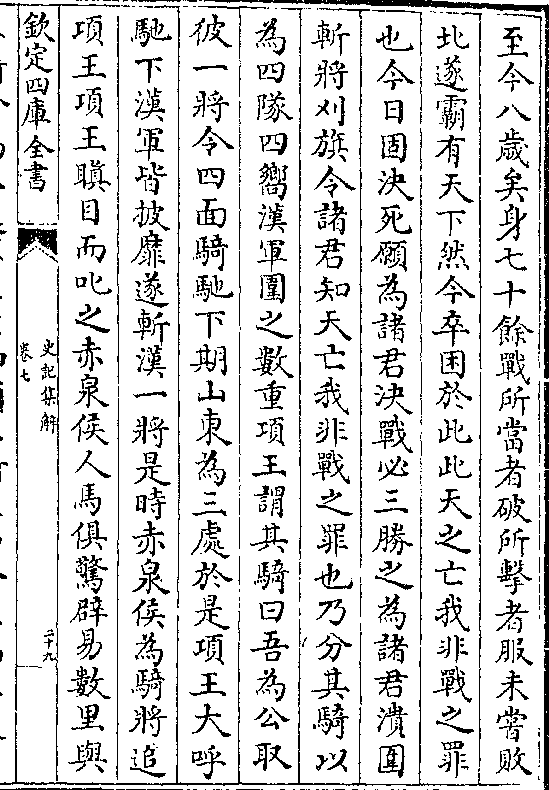 至今八歳矣身七十餘戰所當者破所擊者服未嘗敗
北遂霸有天下然今卒困於此此天之亡我非戰之罪
也今日固決死願為諸君決戰必三勝之為諸君潰圍
斬將刈旗令諸君知天亡我非戰之罪也乃分其騎以
為四隊四嚮漢軍圍之數重項王謂其騎曰吾為公取
彼一將令四面騎馳下期山東為三處於是項王大呼
馳下漢軍皆披靡遂斬漢一將是時赤泉侯為騎將追
項王項王瞋目而叱之赤泉侯人馬俱驚辟易數里與
欽定四庫全書
史記集解
卷七
二十九